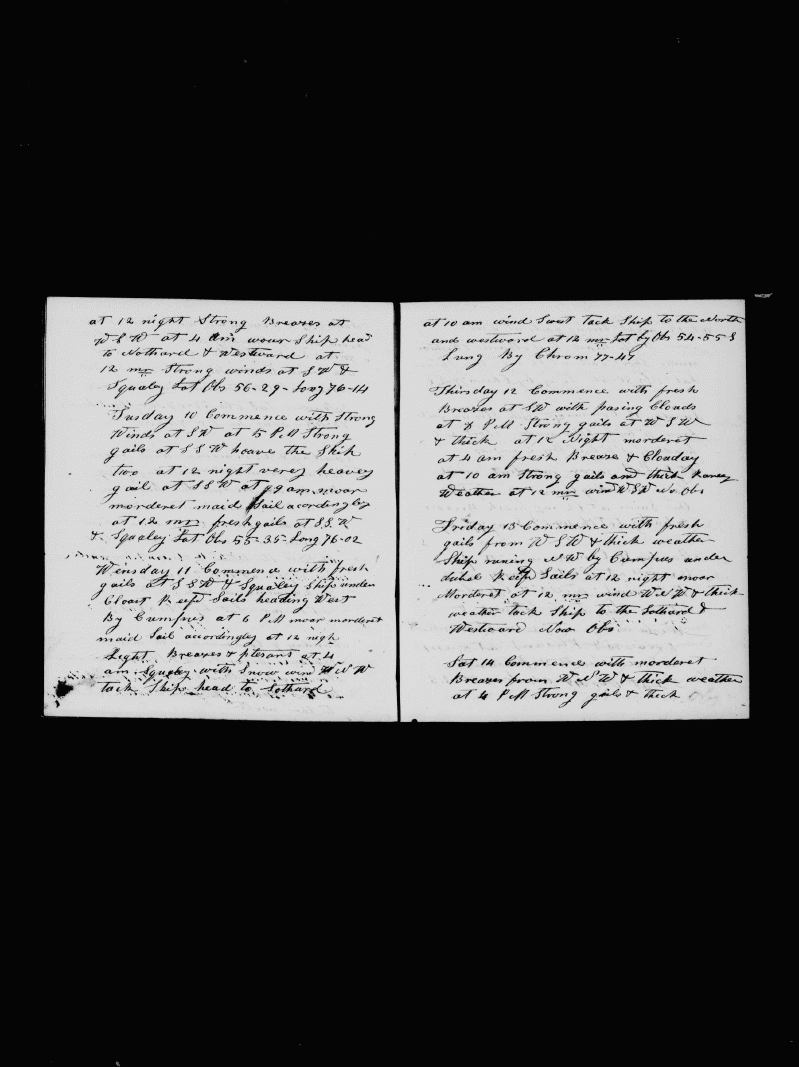 at 12 night Strong Breazes at
W S W at 4 am wour Ship head
to Nothard & Westward at
12 mr Strong winds at S W &
Squaley Lat Obs 56-29- Long 76-14
Tusday 10 Commence with Strong
Winds at S W at 5 P M Strong
gails at S S W hoave the Ship
two at 12 night verey heavey
gail at S S W at 9 am moor
morderet maid Sail acordingley
at 12 mr fresh gails at S S W
& Squaley Lat Obs 55-35- Long 76-02
Wensday 11 Commence with fresh
gails at S S W & Squaley Ship under
Cloast Reeft Sails heading West
By Cumpus at 6 P M moor morderet
maid Sail accordingley at 12 nigh
Light Breazes & plesant at 4
am Squaley with Snow wind W N W
tack Ship head to Sothard
at 10 am wind Swest tack Ship to the North
and westward at 12 mr Lat by Obs 54-55 S
Lung By Chrom 77-47
Thirsday 12 Commence with fresh
Breazes at S W with pasing Clouds
at 8 P M Strong gails at W S W
& thick at 12 Night morderet
at 4 am fresh Breaze & Clouday
at 10 am Strong gails and thick Raney
Weather at 12 mr wind W S W No Obs
Friday 13 Commence with fresh
gails from W S W & thick weather
Ship runing N W by Cumpus under
dubel Reeft Sails at 12 night moor
Morderet at 12 mr wind W N W & thick
weather tack Ship to the Sothard &
Westward Now Obs
Sat 14 Commence with morderet
Breazes from W N W & thick weather
at 4 P M Strong gails & thick